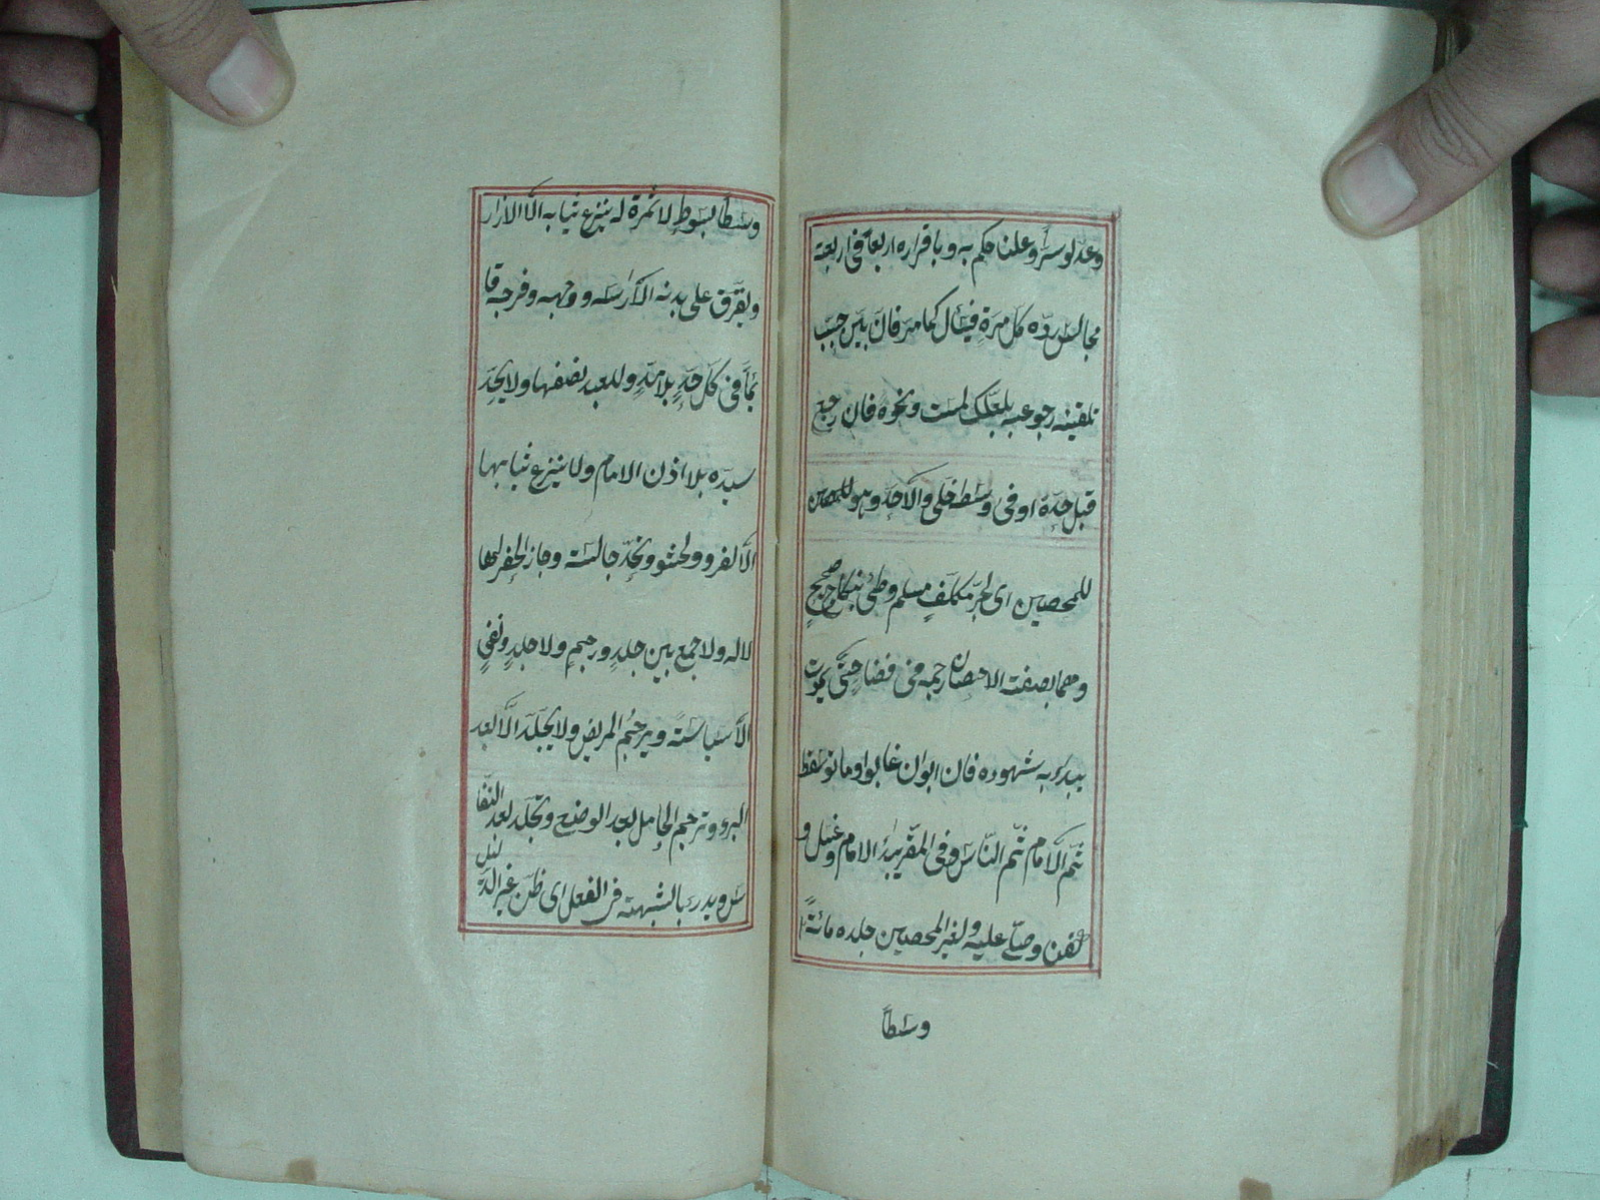 وعدلوسرّا وعلنا حكم به وباقراره اربعا فى اربعة
مجالس ردّه كل مرة فيسأل كما مر فان بيّن حبّب
تلقينه رجوعه بلعلّك لمست ونحوه فان رجع
قبل حدّه او فى وسطه خلى والّا حدّ وهو للمحصن
للمحصين اى لحرّ مكلّف مسلم وطئ بنكاح صحيح
وهما بصفة الاحصان رجمه فى فضا حتّى يموت
يبدء به شهوده فان ابوا ان غابوا او ماتوا سقط
ثم الامام ثم النّاس وفى المقرّ يبدء الامام وغسل و
كفن وصلّى عليه ولغير المحصين جلده مائة
وسطاً
وسطا بسوط لا ثمرة له ينزع ثيابه الّا الازار
ويفرّق على بدنه الّا راسه ووجهه وفرجه قا
ئماً فى كلّ حدّ بلا مدّ وللعبد نصفها ولا يحدّ
سيده بلا اذن الامام ولا ينزع ثيابها
الّا الفرو والحشو وتحدّ جالسة وجاز الحفر لها
لا له ولا جمع بين جلد ورجم ولا جلد ونفى
الّا سياسةً ويرجم المريض ولا يجلد الّا بعد
البرء وترجم الحامل بعد الوضع وتجلد بعد النفا
س ويدرء بالشبهة فى الفعل اى ظنّ غير الدليل